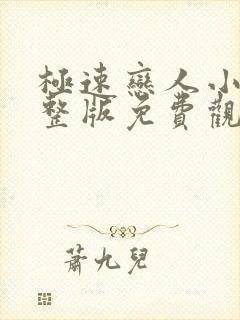 極速戀人小
整版免費觀
蕭九兒